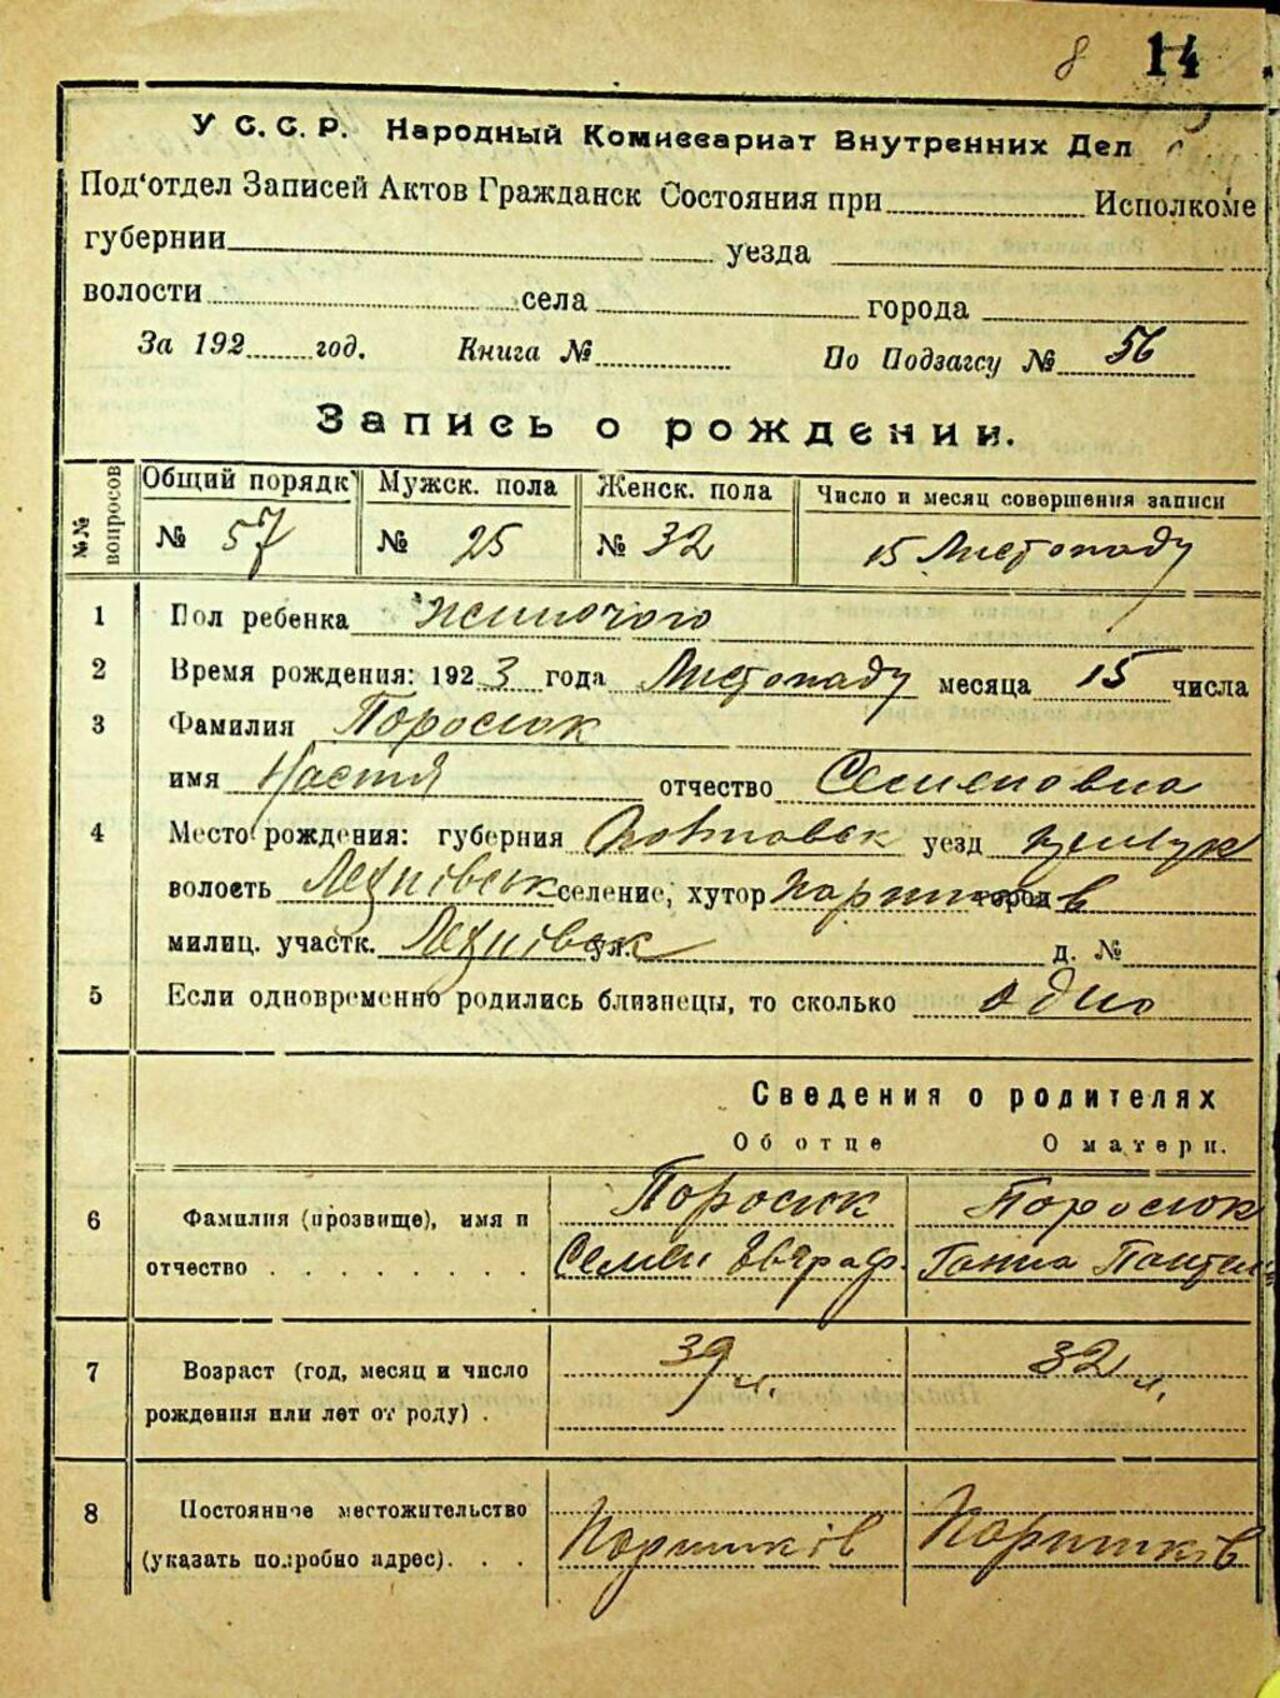 8 14
У С. С. Р. Народный Комиссариат Внутренних Дел
Под'отдел Записей Актов Гражданск Состояния при Исполкоме
губернии уезда
волости села города
За 192 год. Книга № По Подзагсу № 56
Запись о рождении.
№№ вопросов
Общий порядк Мужск. пола Женск. пола Число и месяц совершения записи
№ 57 № 25 № 32 15 Листопаду
1 Пол ребенка жиночого
2 Время рождения: 192 3 года Листопаду месяца 15 числа
3 Фамилия Поросюк
имя Настя отчество Семеновна
4 Место рождения: губерния уезд
волость селение, хутор город
милиц. участк. ул. д. №
5 Если одновременно родились близнецы, то сколько одно
Сведения о родителях
Об отце О матери.
6 Фамилия (прозвище), имя и Поросюк Поросюк
отчество Семен Евграф. Ганна Пантел
7 Возраст (год, месяц и число 39 32
рождения или лет от роду) .
8 Постоянное местожительство
(указать подробно адрес). Паришків Паришків